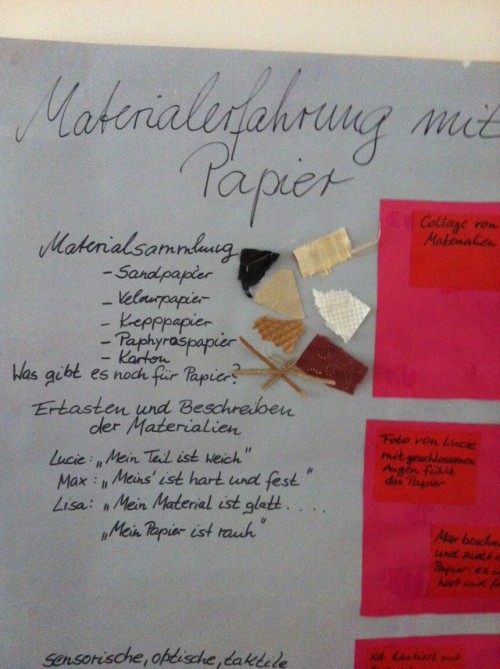 Materialerfahrung mit
Papier
Materialsammlung
- Sandpapier
- Velourpapier
- Krepppapier
- Paphyraspapier
- Karton
Was gibt es noch für Papier?
Ertasten und Beschreiben
der Materialien
Lucie: „Mein Teil ist weich"
Max: „Meins' ist hart und fest"
Lisa: „Mein Material ist glatt....
„Mein Papier ist rauh"
sensorische, optische, taktile
Collage von
Materialien
Foto von Lucie
mit geschlossenen
Augen fühlt
das Papier
Max
und
Papier: es
hart und
hantiert mit